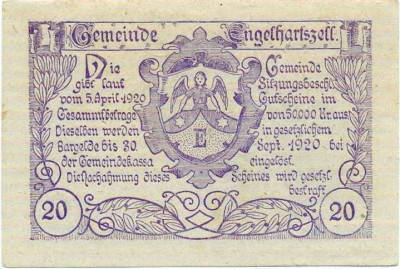 Gemeinde Engelhartszell.
Die Gemeinde
gibt laut Sitzungsbeschl.
vom 5. April 1920 Gutscheine im
Gesammtbetrage von 50000 Kr. aus
Dieselben werden in gesetzlichem
Bargelde bis 30. Sept. 1920 bei
der Gemeindekassa eingelöst.
Die Nachahmung dieses Scheines wird gesetzl.
bestraft.
E
20 20